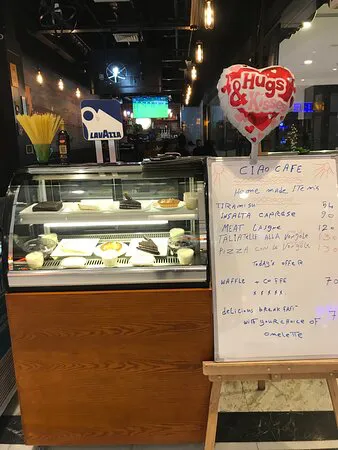 LAVAZZA
Hugs
& Kisses
CIAO CAFE
Home made Items
TIRAMISU 54
INSALTA CAPRESE 90
MEAT LASGNE 120
TALIATELLE ALLA VONGOLE 130
PIZZA CON LE VONGOLE 130
Today's offers
WAFFLE + COFFE 70
xxxxx
delicious breakfast
with your choice of 7
omelette